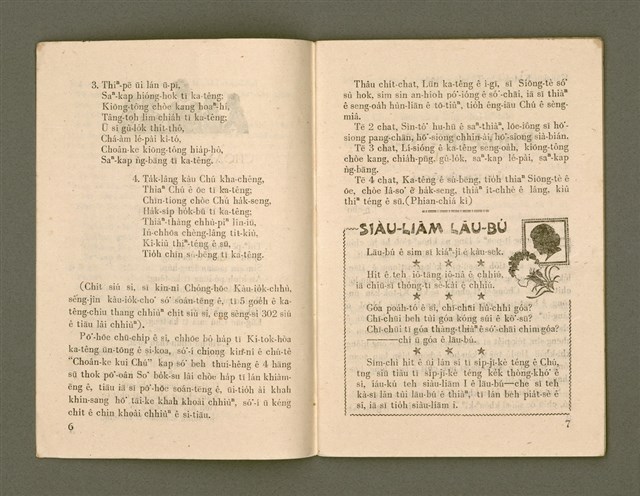 3. Thiⁿ-pē ūi lán ū-pī,
Saⁿ-kap hióng-hok tī ka-têng;
Kiōng-tông chòe kang hoaⁿ-hí,
Tâng-toh lim-chia̍h tī ka-têng;
Ū sî gû-lo̍k thit-thô,
Chá-àm lé-pài kî-tó,
Choân-ke kiong-tông hia̍p-hô,
Saⁿ-kap ǹg-bāng tī ka-têng.
4. Ta̍k-lâng kàu Chú kha-chêng,
Thiaⁿ Chú ê ōe tī ka-têng;
Chin-tiong chòe Chú ha̍k-seng,
Ha̍k-si̍p ho̍k-bū tī ka-têng;
Thiàⁿ-thàng chhù-piⁿ lîn-iú,
Iú-chhōa chêng-lâng tit-kiù,
Kî-kiû thiⁿ-téng ê sū,
Tio̍h chīn sò-bēng tī ka-têng.
(Chit siú si, sī kin-nî Chòng-hōe Kàu-io̍k-chhù,
sêng-jīn kàu-io̍k-cho͘ só͘ soán-tēng ê, tī 5 goe̍h ê ka-
têng-chiu thang chhiùⁿ chit siú si, ēng sèng-si 302 siú
ê tiāu lâi chhiùⁿ).
Pó͘-hōe chú-chip ê si, chhōe bô ha̍p tī Ki-tok-hòa
ka-têng ūn-tōng ê si-koa, só͘-í chiong kin-nî ê chú-tê
“Choân-ke kui Chú” kap só͘ beh thui-hêng ê 4 hāng
sū thok pó͘-oân So͘ bo̍k-su lâi chòe ha̍p tī lán khiàm-
ēng ê, tiāu iā sī pó͘-hōe soán-tēng ê, ūi-tio̍h ài khah
khin-sang hō͘ tāi-ke khah khoài chhiùⁿ, só͘-í ū kéng
chit ê chin khoài chhiùⁿ ê si-tiāu.
6
Thâu chit-chat, Lūn ka-têng ê ì-gī, sī Siōng-tè só͘
sù hok, sim sin an-hioh pó͘-iông ê só͘-chāi, iā sī thiàⁿ
ê seng-oa̍h hùn-liān ê tō-tiûⁿ, tio̍h êng-iāu Chú ê sèng-
miâ.
Tē 2 chat, Sin-tô͘ hu-hū ê saⁿ-thiàⁿ, lóe-iông sī hō͘-
siong pang-chān, hō͘-siong chhin-ài, hō͘-siong siá-biân.
Tē 3 chat, Lí-sióng ê ka-têng seng-oa̍h, kiōng-tông
chòe kang, chia̍h-pn̄g, gû-lo̍k, saⁿ-kap lé-pài, saⁿ-kap
ǹg-bāng.
Tē 4 chat, Ka-têng ê sù-bēng, tio̍h thiaⁿ Siōng-tè ê
ōe, chòe Iâ-so͘ ê ha̍k-seng, thiàⁿ it-chhè ê lâng, kiû
thiⁿ téng ê sū.(Phian-chiá kì)
SIÀU-LIĀM LĀU-BÚ
Lāu-bú ê sim sī kiáⁿ-jî ê kàu-sek.
Hit ê teh iô-tāng iô-nâ ê chhiú,
iā chiū sī thòng-tī sè-kài ê chhiú.
Góa poa̍h-tó ê sî, chī-chūi hû-chhî góa?
Chī-chūi beh tùi góa kóng súi ê kò͘-sū?
Chī-chūi tī góa thàng-thiàⁿ ê só͘-chūi chim góa?
——chī ū góa ê lāu-bú.
Sim-chí hit ê ùi lán sī tī si̍p-jī-kè téng ê Chú,
tng siū tiàu tī si̍p-jī-kè téng kek thòng-khó͘ ê
sî, iáu-kú teh siàu-liām I ê lāu-bú—che sī teh
kà-sī lán tùi lāu-bú ê thiàⁿ, tī lán beh pia̍t-sè ê
sî, iā sī tio̍h siàu-liām i.
7